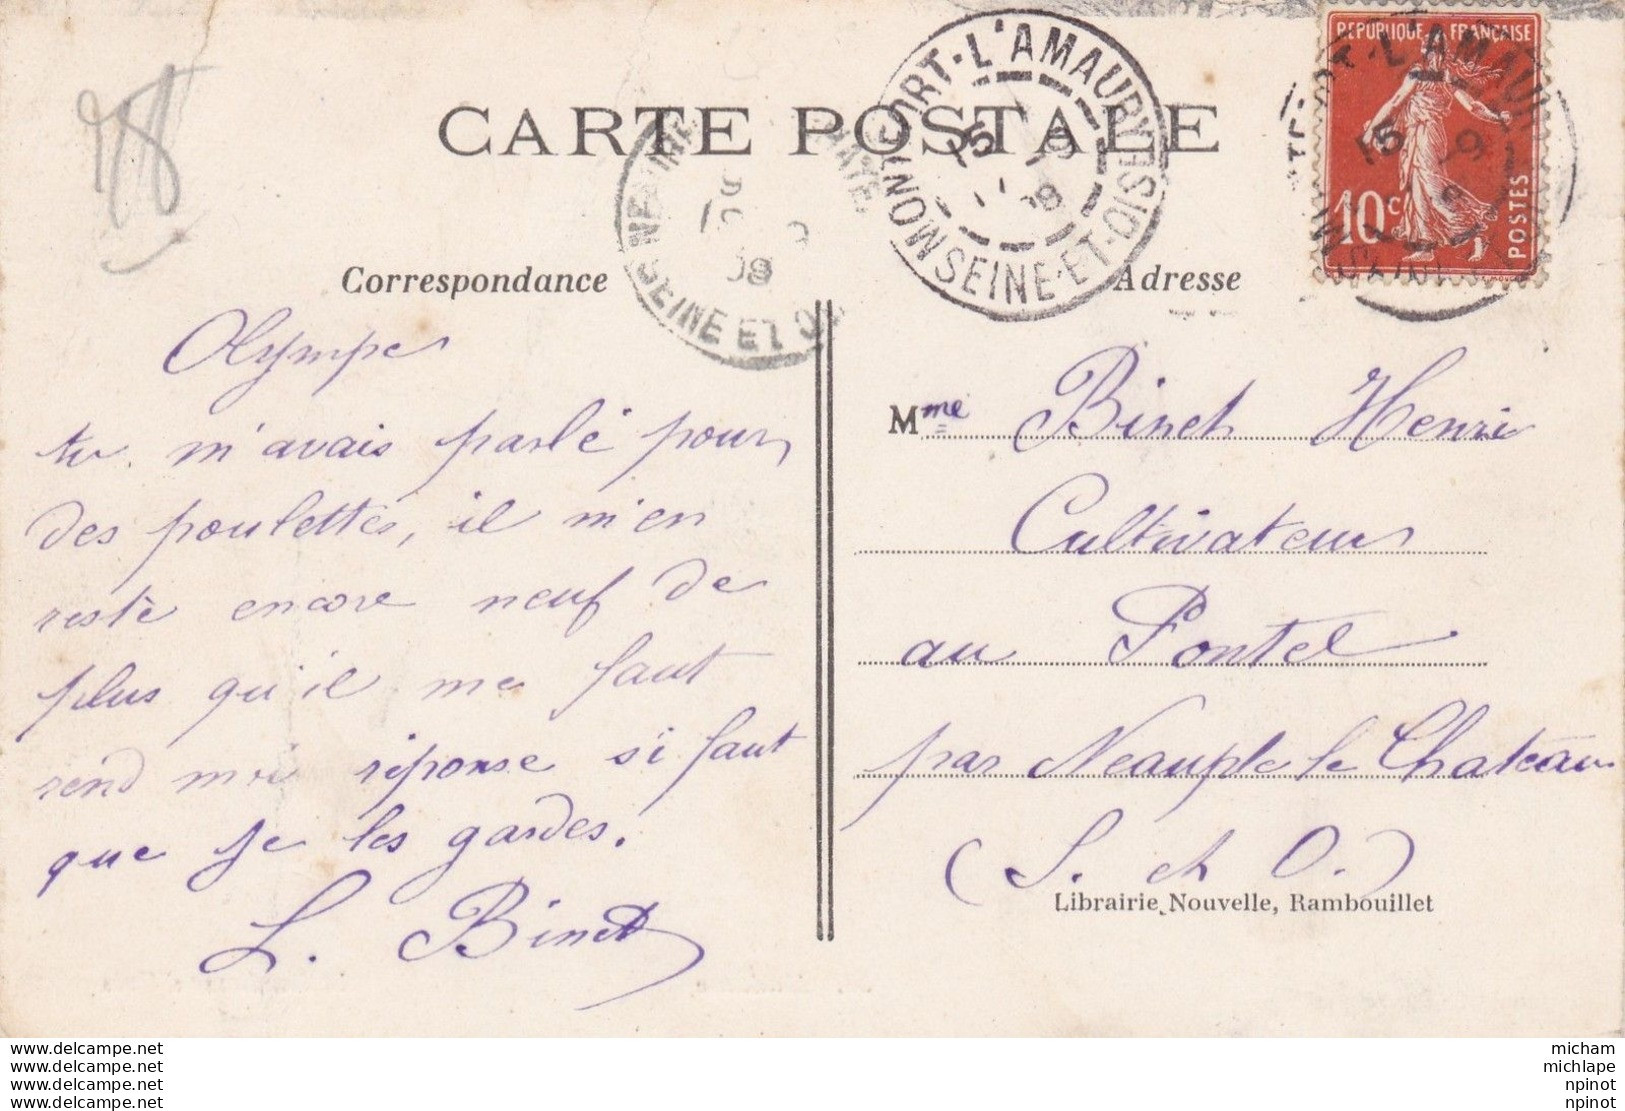 78
CARTE POSTALE
MONTFORT-L'AMAURY
SEINE-ET-OISE
15
REPUBLIQUE FRANÇAISE
10c
POSTES
SEINE ET O
09
Correspondance
Olympe
tu m'avais parlé pour
des poulettes, il m'en
reste encore neuf de
plus qu'il me faut
rend moi réponse si faut
que je les gardes.
L. Binet
Adresse
Mme Binet Henri
Cultivateur
au Pontel
par Neauple le Chateau
(S. et O.)
Librairie Nouvelle, Rambouillet
www.delcampe.net
www.delcampe.net
www.delcampe.net
www.delcampe.net
micham
michlape
npinot
npinot